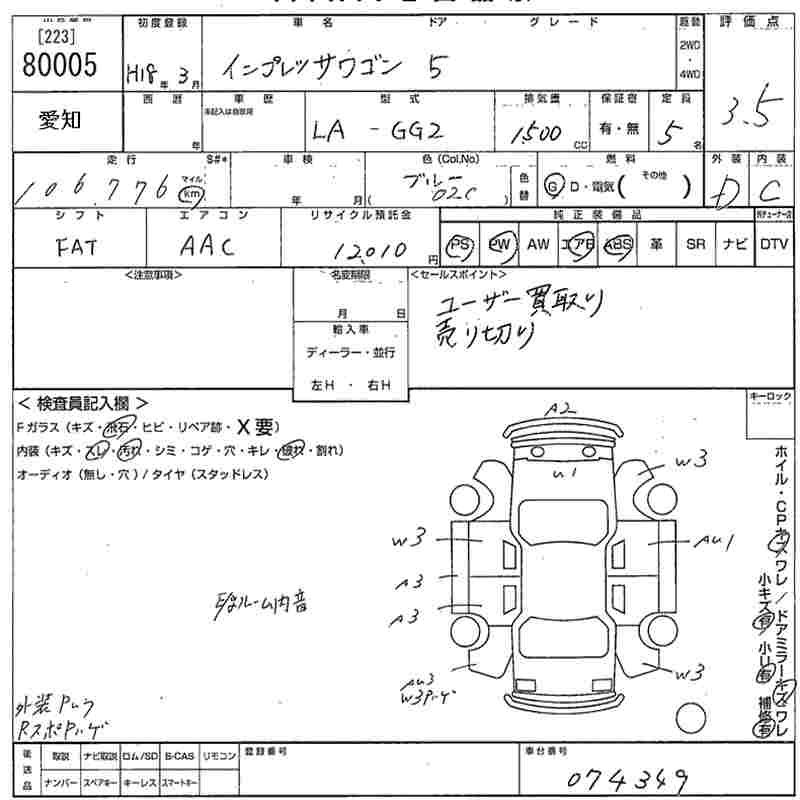 [223]
80005
初度登録 車名 ドア グレード 駆動 評価点
H18年 3月 インプレッサワゴン 5 2WD・4WD 3.5
愛知
西暦 年 車歴 未記入は自家用 型式 排気量 保証書 定員
LA - GG2 1,500 CC 有・無 5名
走行 S#* 車検 色(Col.No) 燃料 外装 内装
106,776 マイル km 年 月 ( ブルー 02C ) 色替 G・D・電気( その他 ) D C
シフト エアコン リサイクル預託金 純正装備品
FAT AAC 12,010円 PS PW AW エアB ABS 革 SR ナビ DTV
<注意事項> 名変期限 <セールスポイント>
月 日
ユーザー買取り
売り切り
輸入車
ディーラー・並行
左H ・ 右H
< 検査員記入欄 > キーロック
Fガラス(キズ・飛石・ヒビ・リペア跡・X要)
内装(キズ・スレ・汚れ・シミ・コゲ・穴・キレ・破れ・割れ)
オーディオ(無し・穴)/タイヤ(スタッドレス)
A2
U1
W3
W3
AU1
A3
A3
AU3
W3
ホイル・CPキズワレ/ドアミラーキズワレ
小キズ有 小U有 補修有
ルーム内音
外装
後送品 取説 ナビ取説 ロム/SD B-CAS リモコン 登録番号 車台番号
ナンバー スペアキー キーレス スマートキー 074349